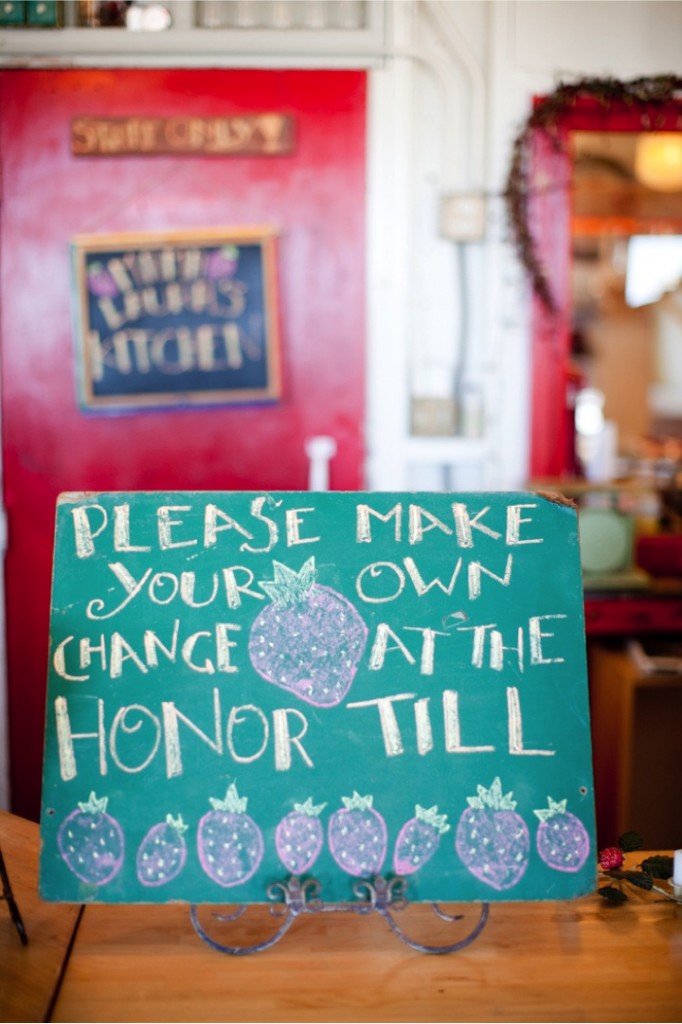 STAFF ONLY
KITCHEN
PLEASE MAKE
YOUR OWN
CHANGE AT THE
HONOR TILL